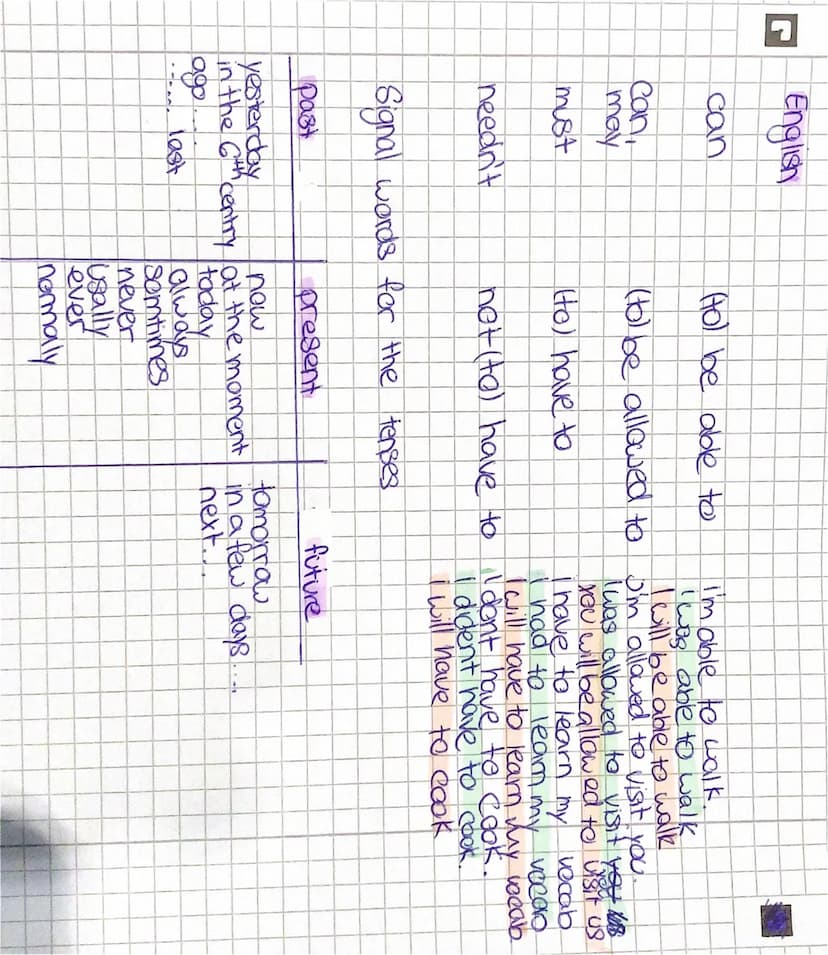 English
can (to) be able to I'm able to walk
I was able to walk
I will be able to walk
can, may (to) be allowed to I'm allowed to visit you.
I was allowed to visit us
you will be allowed to visit us
must (to) have to I have to learn my vocab
I had to learn my vocab
I will have to learn my vocab
needn't not (to) have to I don't have to cook.
I dident have to cook.
I will have to cook
Signal words for the tenses
past present future
yesterday now tomorrow
in the 6th centry at the moment in a few days....
ago... today next...
...... last always
somtimes
never
usally
ever
normally